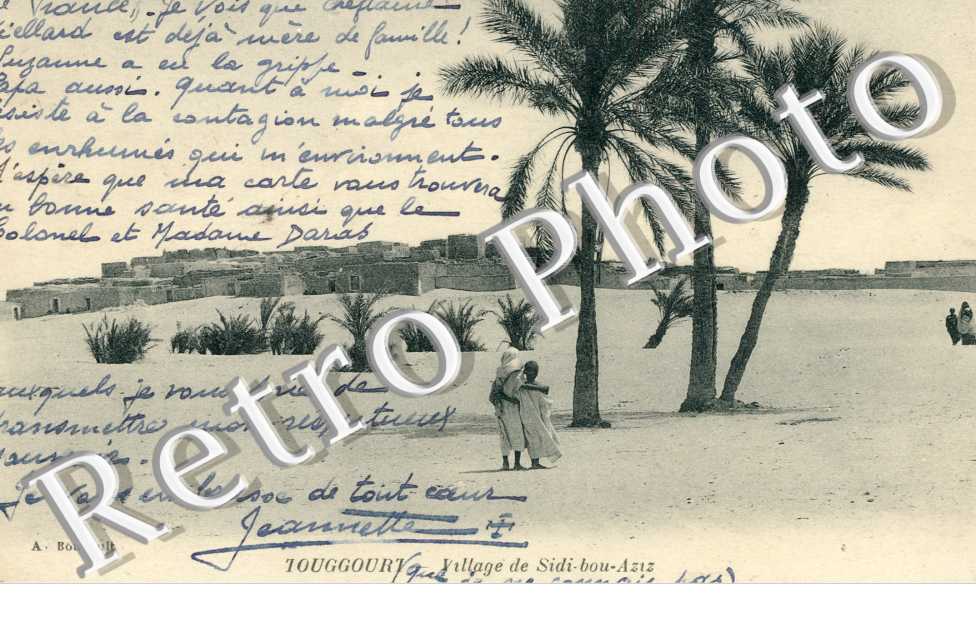 France". Je vois que
est déjà mère de famille!
Suzanne a eu la grippe
Papa aussi. Quant à moi je
résiste à la contagion malgré tous
les enrhumés qui m'environnent.
J'espère que ma carte vous trouvera
en bonne santé ainsi que le
Colonel et Madame Daras
auxquels je vous prie de
transmettre mon respectueux
souvenir.
Je vous embrasse de tout cœur
Jeannette
A. Bou
TOUGGOURT Village de Sidi-bou-Aziz
(que je ne connais pas)
Retro Photo
Retro Photo